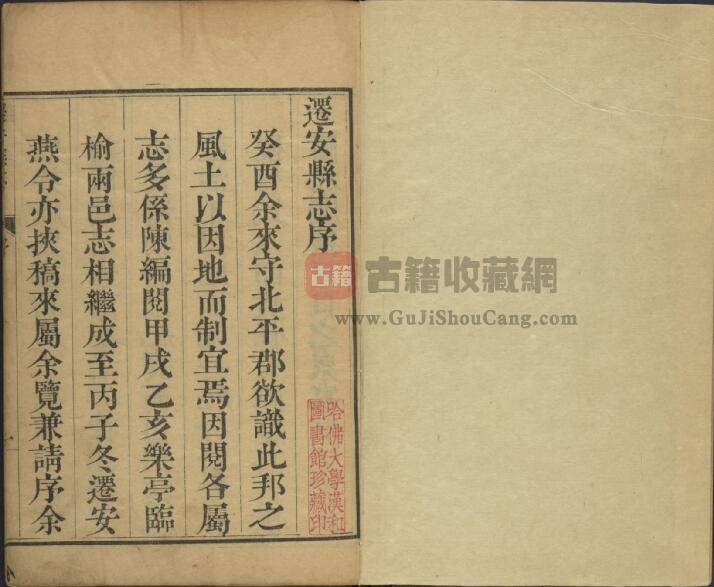 遷安縣志序
癸酉余來守北平郡欲識此邦之
風土以因地而制宜焉因閱各屬
志多係陳編閱甲戌乙亥樂亭臨
榆兩邑志相繼成至丙子冬遷安
燕令亦挾稿來屬余覽兼請序余
哈佛大學漢和
圖書館珍藏印
古籍
古籍收藏網
www.GuJiShouCang.com